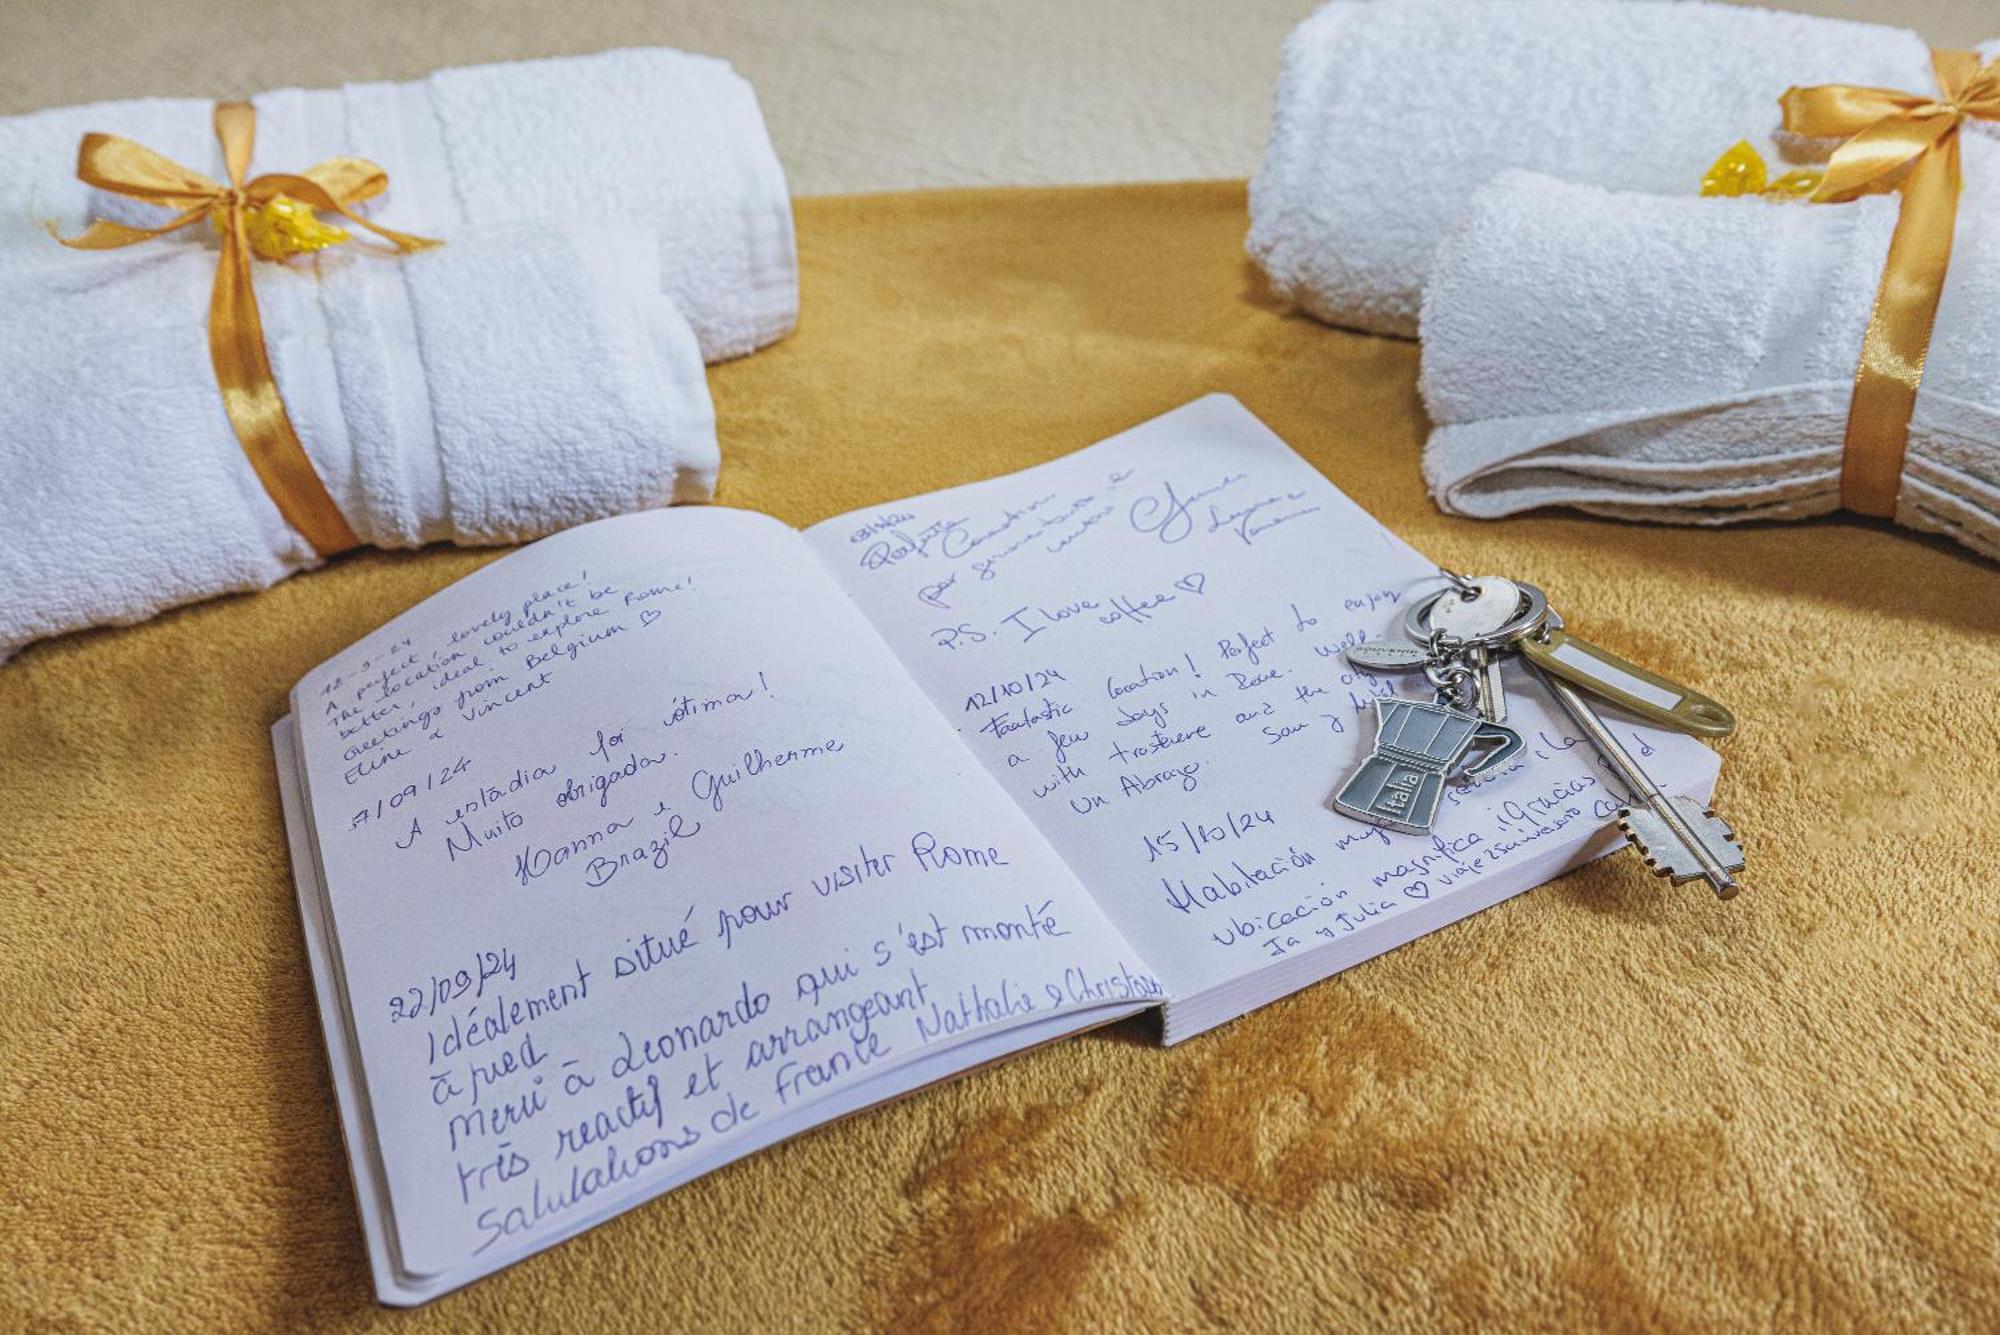 12-9-24
A perfect, lovely place!
The location couldn't be
better, ideal to explore Rome!
Greetings from Belgium ♡
Eline & Vincent
17/09/24
A estadia foi ótima!
Muito obrigada.
Hanna e Guilherme
Brazil
22/09/24
Idéalement situé pour visiter Rome
à pied
merci à Leonardo qui s'est montré
très reactif et arrangeant
Salutations de France Nathalie & Christian
Perfetta
per
P.S. I love
coffee ♡
12/10/24
Fantastic location! Perfect to enjoy
a few days in Rome. Well
with trastevere and the city
Un Abrazo.
15/10/24
Habitación muy
Ubicación magnifica ¡¡Gracias
y Julia ♡ viaje 25 aniversario
SOUVENIR
Italia